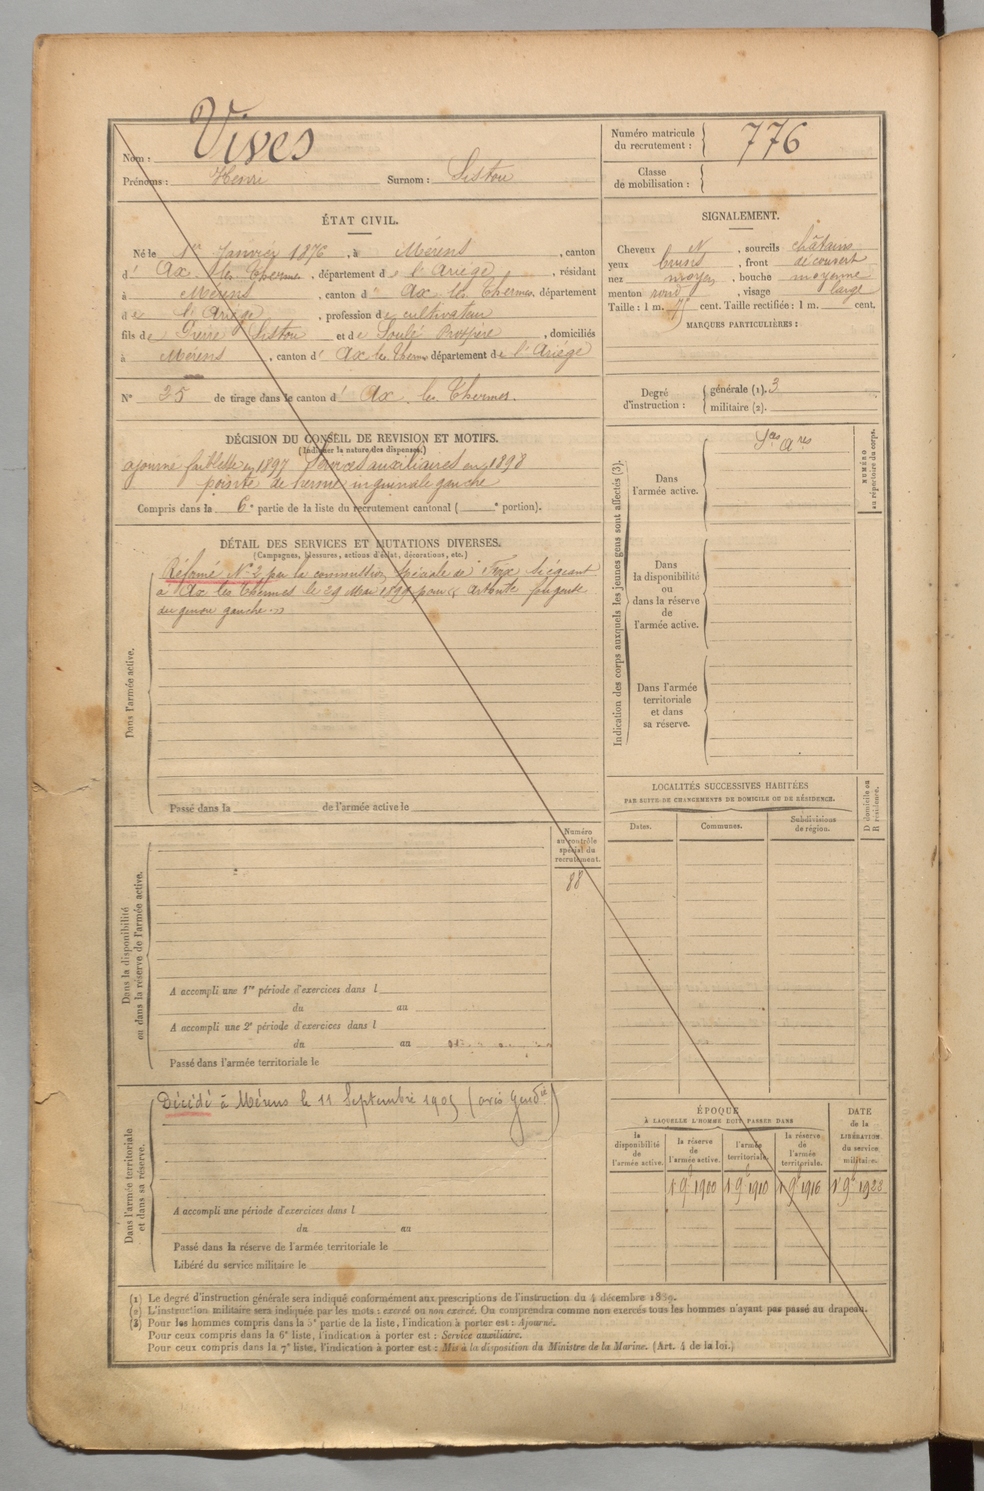 Nom : Vives
Prénoms : Henri Surnom : Sistou
Numéro matricule du recrutement : 776
Classe de mobilisation :
ÉTAT CIVIL.
Né le 1er Janvier 1876, à Mérens, canton
d' Ax les Thermes, département de l'Ariège, résidant
à Mérens, canton d' Ax les Thermes, département
de l'Ariège, profession de cultivateur
fils de Sistou et de Soulé, domiciliés
à Mérens, canton d' Ax les Thermes département de l'Ariège
N° 35 de tirage dans le canton d' Ax les Thermes.
SIGNALEMENT.
Cheveux N, sourcils châtains
yeux bruns, front découvert
nez moyen, bouche moyenne
menton rond, visage large
Taille : 1 m. cent. Taille rectifiée : 1 m. cent.
MARQUES PARTICULIÈRES :
Degré d'instruction :
générale (1). 3
militaire (2).
DÉCISION DU CONSEIL DE REVISION ET MOTIFS.
(Indiquer la nature des dispenses.)
ajourné faiblesse en 1897 Services auxiliaires en 1898
pointe de hernie inguinale gauche
Compris dans la 6e partie de la liste du recrutement cantonal ( e portion).
DÉTAIL DES SERVICES ET MUTATIONS DIVERSES.
(Campagnes, blessures, actions d'éclat, décorations, etc.)
Dans l'armée active.
Réformé N° 2 par la commission spéciale de Foix siégeant
à Ax les Thermes le 29 Mai pour
du genou gauche
Passé dans la de l'armée active le
Indication des corps auxquels les jeunes gens sont affectés (3).
NUMÉRO au répertoire du corps.
Dans l'armée active.
Sces Ares
Dans la disponibilité ou dans la réserve de l'armée active.
Dans l'armée territoriale et dans sa réserve.
LOCALITÉS SUCCESSIVES HABITÉES
PAR SUITE DE CHANGEMENTS DE DOMICILE OU DE RÉSIDENCE.
Dates. Communes. Subdivisions de région.
D domicile ou R résidence.
Dans la disponibilité ou dans la réserve de l'armée active.
Numéro au contrôle spécial du recrutement.
88
A accompli une 1re période d'exercices dans l
du au
A accompli une 2e période d'exercices dans l
du au
Passé dans l'armée territoriale le
Dans l'armée territoriale et dans sa réserve.
Décédé à Mérens le 11 Septembre 1905 (avis Gendie)
A accompli une période d'exercices dans l
du au
Passé dans la réserve de l'armée territoriale le
Libéré du service militaire le
ÉPOQUE
À LAQUELLE L'HOMME DOIT PASSER DANS
la disponibilité de l'armée active.
la réserve de l'armée active.
l'armée territoriale.
la réserve de l'armée territoriale.
DATE de la LIBÉRATION du service militaire.
1 9b 1900 1 9b 1910 1 9b 1916 1 9b 1923
(1) Le degré d'instruction générale sera indiqué conformément aux prescriptions de l'instruction du 4 décembre 1889.
(2) L'instruction militaire sera indiquée par les mots : exercé ou non exercé. On comprendra comme non exercés tous les hommes n'ayant pas passé au drapeau.
(3) Pour les hommes compris dans la 5e partie de la liste, l'indication à porter est : Ajourné.
Pour ceux compris dans la 6e liste, l'indication à porter est : Service auxiliaire.
Pour ceux compris dans la 7e liste, l'indication à porter est : Mis à la disposition du Ministre de la Marine. (Art. 4 de la loi.)